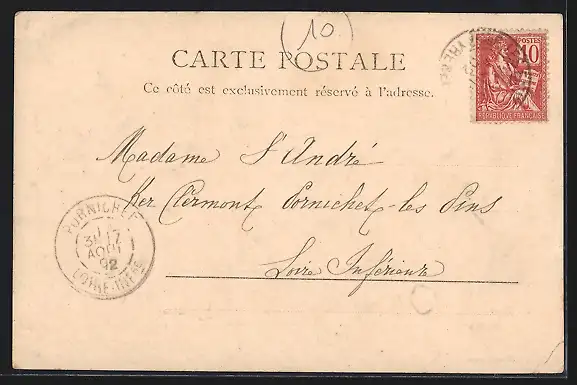 (10)
CARTE POSTALE
Ce côté est exclusivement réservé à l'adresse.
POSTES
10
REPUBLIQUE FRANÇAISE
Madame S'André
Ker Clermont Pornichet-les Pins
Loire Inférieure
PORNICHET
31
AOUT
LOIRE-INFRE